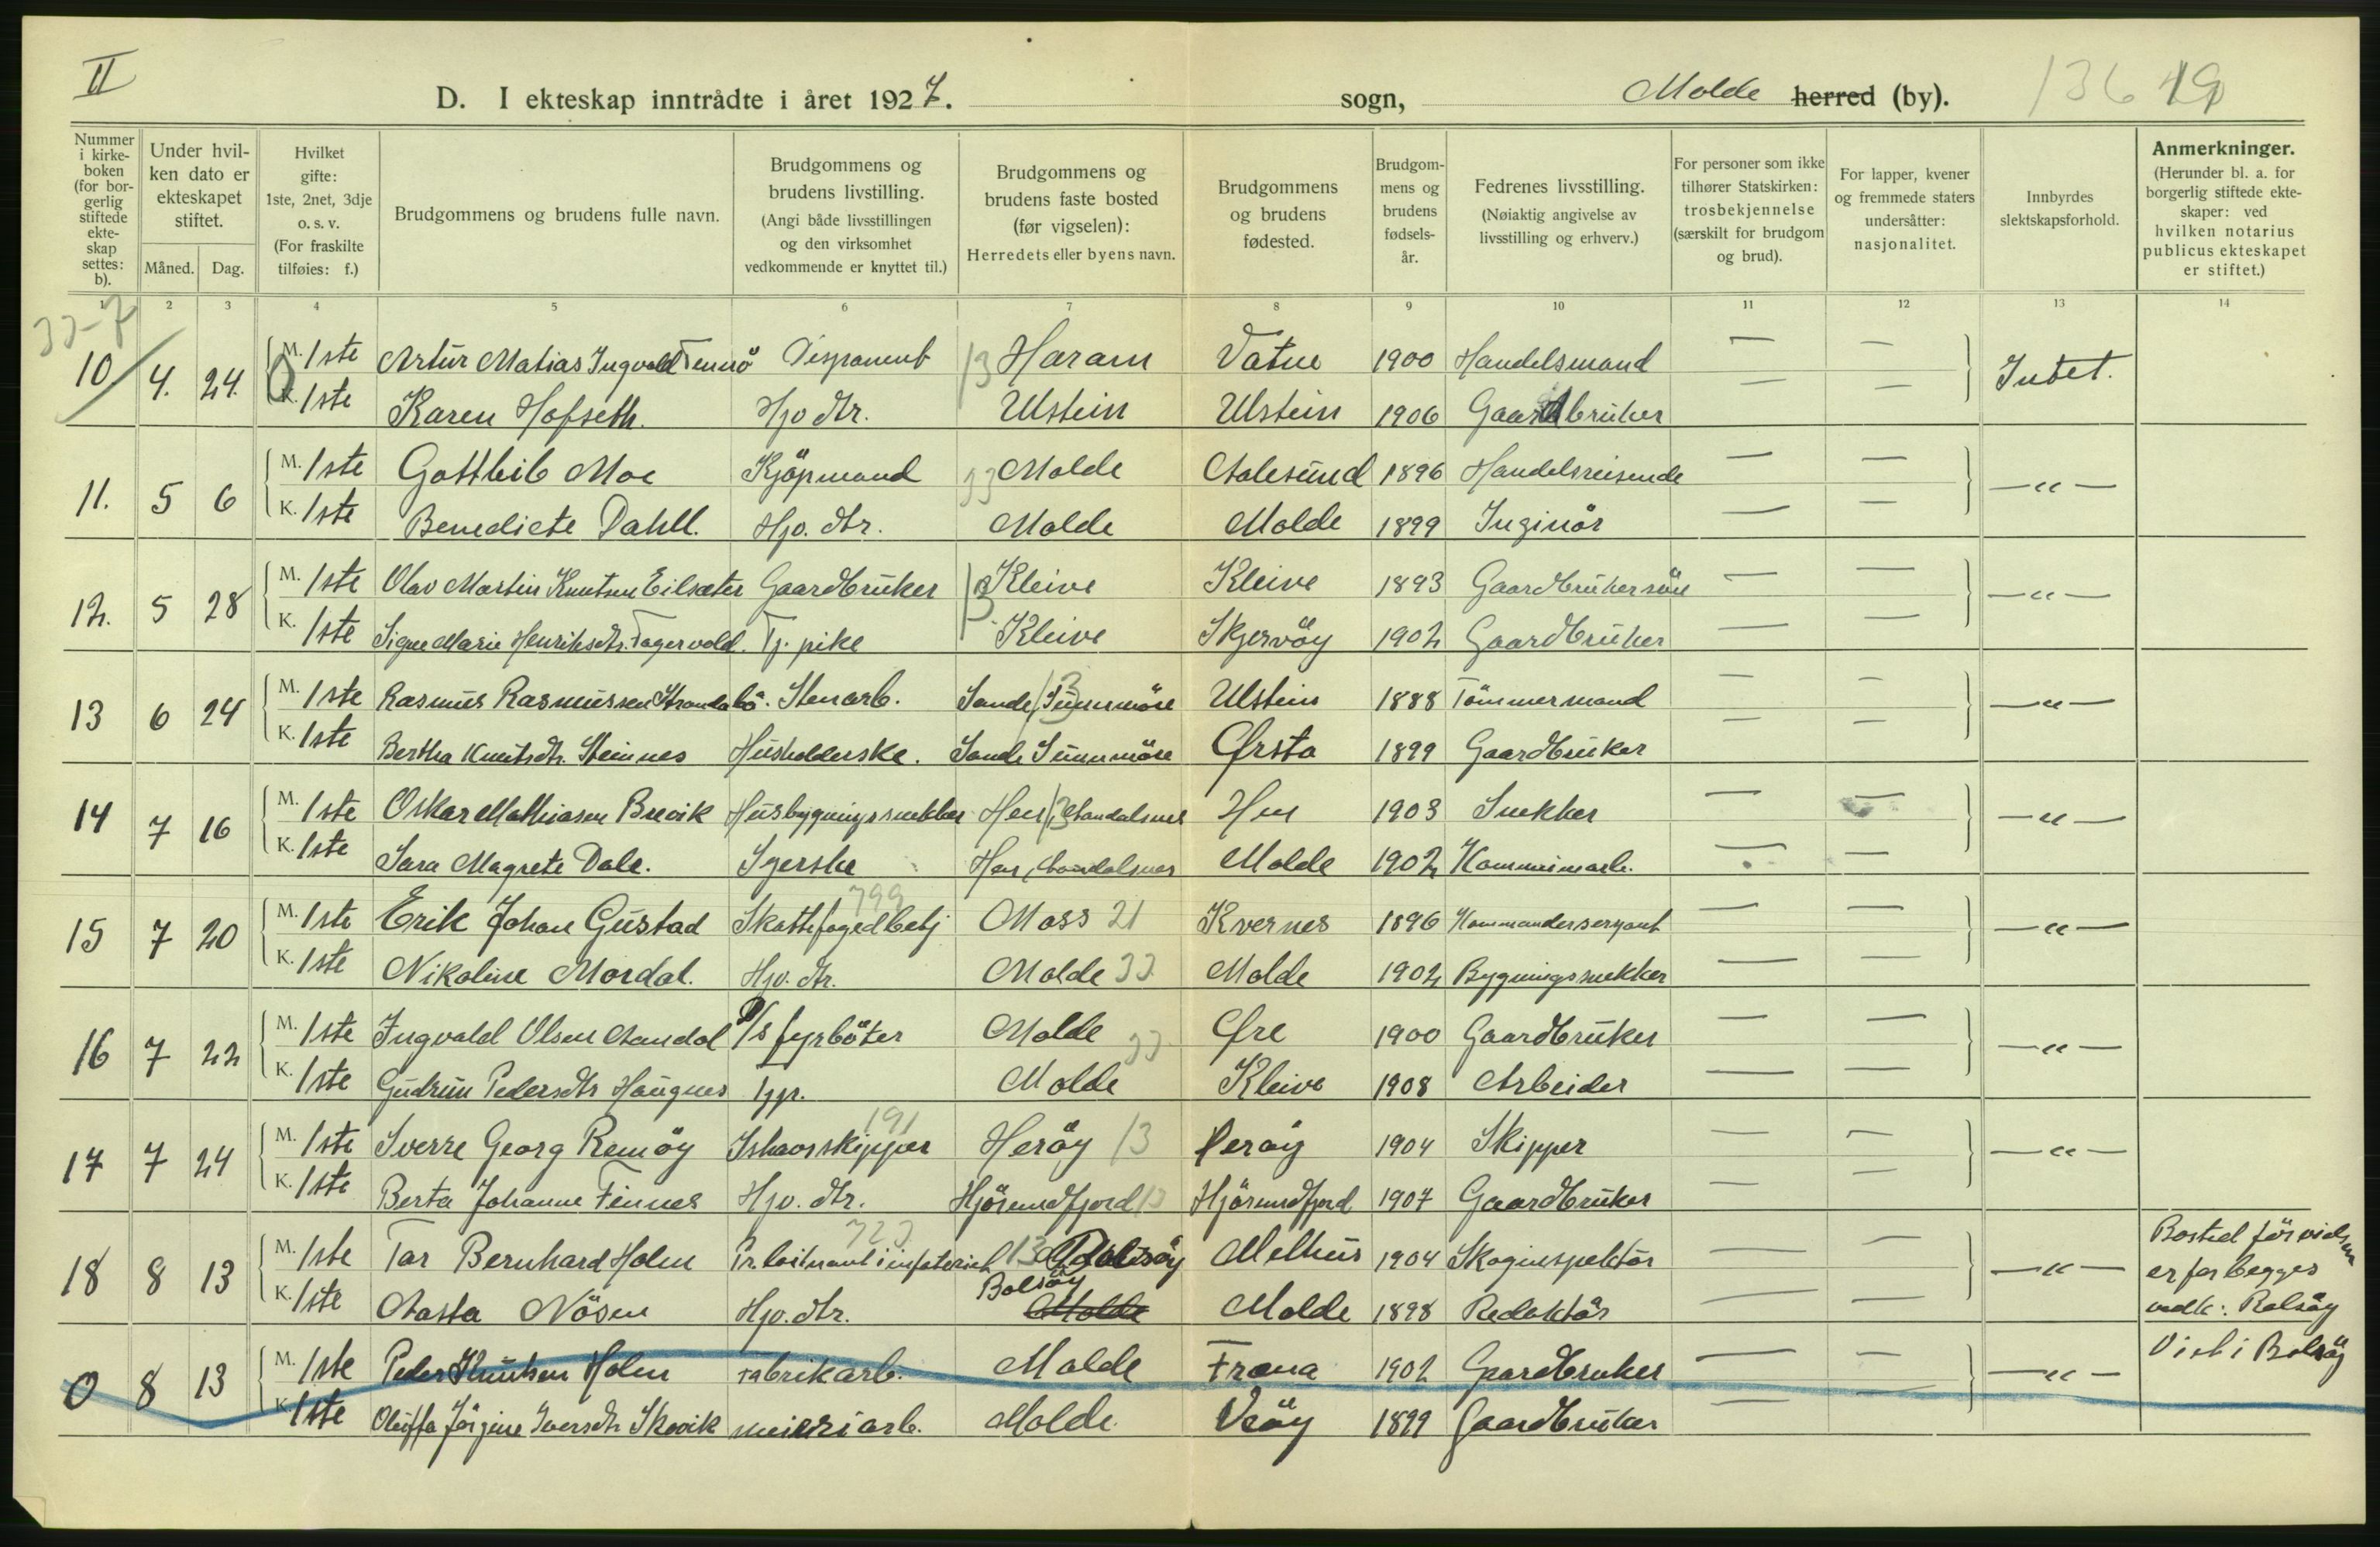 II
D. I ekteskap inntrådte i året 1927. sogn, Molde herred (by). 136
Nummer i kirkeboken (for borgerlig stiftede ekteskap settes: b).
Under hvilken dato er ekteskapet stiftet.
Måned. Dag.
Hvilket gifte: 1ste, 2net, 3dje o. s. v. (For fraskilte tilføies: f.)
Brudgommens og brudens fulle navn.
Brudgommens og brudens livstilling. (Angi både livsstillingen og den virksomhet vedkommende er knyttet til.)
Brudgommens og brudens faste bosted (før vigselen): Herredets eller byens navn.
Brudgommens og brudens fødested.
Brudgommens og brudens fødselsår.
Fedrenes livsstilling. (Nøiaktig angivelse av livsstilling og erhverv.)
For personer som ikke tilhører Statskirken: trosbekjennelse (særskilt for brudgom og brud).
For lapper, kvener og fremmede staters undersåtter: nasjonalitet.
Innbyrdes slektskapsforhold.
Anmerkninger. (Herunder bl. a. for borgerlig stiftede ekteskaper: ved hvilken notarius publicus ekteskapet er stiftet.)
1 2 3 4 5 6 7 8 9 10 11 12 13 14
33-7
10 4. 24. M. 1ste Artur Matias Ingvald Tennö Disponent 13 Haram Vatne 1900 Handelsmand — — Intet.
K. 1ste Karen Hofseth. Hjv dtr. Ulstein Ulstein 1906 Gaardbruker — —
11. 5 6 M. 1ste Gottleib Moe Kjöpmand 33 Molde Aalesund 1896 Handelsreisende — — —"—
K. 1ste Benedicte Dahll. Hjv. dtr. Molde Molde 1899 Inginör — —
12. 5 28 M. 1ste Olav Martin Knutsen Eilsæter Gaardbruker 13 Kleive Kleive 1893 Gaardbrukersön — — —"—
K. 1ste Signe Marie Henriksdtr. Fagervold. Tj. pike Kleive Skjervöy 1902 Gaardbruker — —
13 6 24 M. 1ste Rasmus Rasmussen Strandabö. Stenarb. Sande, Sunnmöre 13 Ulstein 1888 Tömmermand — — —"—
K. 1ste Bertha Knutsdtr. Steinnes Husholderske. Sande Sunnmöre Ørsta 1899 Gaardbruker — —
14 7 16 M. 1ste Oskar Mathiasen Brevik Husbygningssnekker Hen, 13 Aandalsnes Hen 1903 Snekker — — —"—
K. 1ste Sara Magrete Dale. Syerske Hen, Aandalsnes Molde 1902 Kommunearb. — —
15 7 20 M. 1ste Erik Johan Gustad Skattefogedbetj 799 Moss 21 Kvernes 1896 Kommandersergant — — —"—
K. 1ste Nikoline Mordal. Hjv. dtr. Molde 33 Molde 1902 Bygningssnekker — —
16 7 22 M. 1ste Ingvald Olsen Aandal D/S fyrböter Molde 33 Øre 1900 Gaardbruker — — —"—
K. 1ste Gudrun Pedersdtr Haugnes Tjp. Molde Kleive 1908 Arbeider — —
17 7 24 M. 1ste Sverre Georg Remöy Ishavsskipper 191 Heröy 13 Heröy 1904 Skipper — — —"—
K. 1ste Berta Johanne Finnes Hjv. dtr. Hjörundfjord 13 Hjörundfjord 1907 Gaardbruker — —
18 8 13 M. 1ste Tor Bernhard Holm Pr. loitnant i infateriet 723 13 Bolsöy Melhus 1904 Skoginspektör — — —"— Bosted för vielsen er for begges vedk: Bolsöy
K. 1ste Aasta Nösen Hjv. dtr. Bolsöy Molde Molde 1898 Redaktör — —
0 8 13 M. 1ste Peder Knutsen Holm Fabrikarb. Molde Fræna 1902 Gaardbruker — — —"— Viet i Bolsöy
K. 1ste Oluffa Jörgine Iversdtr Skovik meieriarb. Molde Veöy 1899 Gaardbruker — —